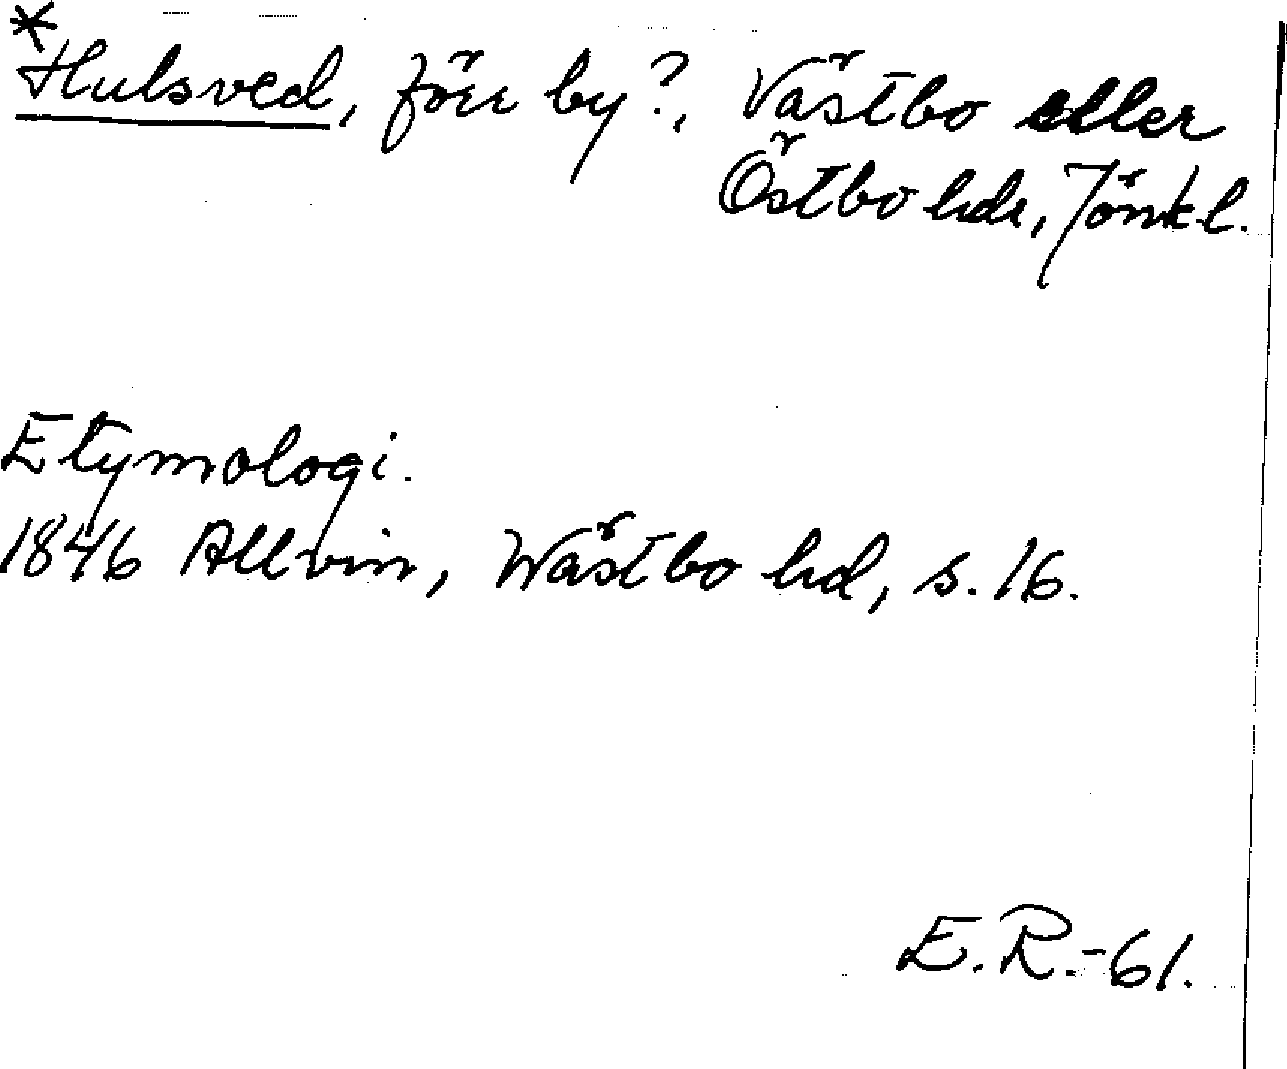 *Hulsved, förr by?, Västbo eller
Östbo hdr, Jönk. l.
Etymologi.
1846 Allvin, Wästbo hd, s. 16.
E.R.-61.